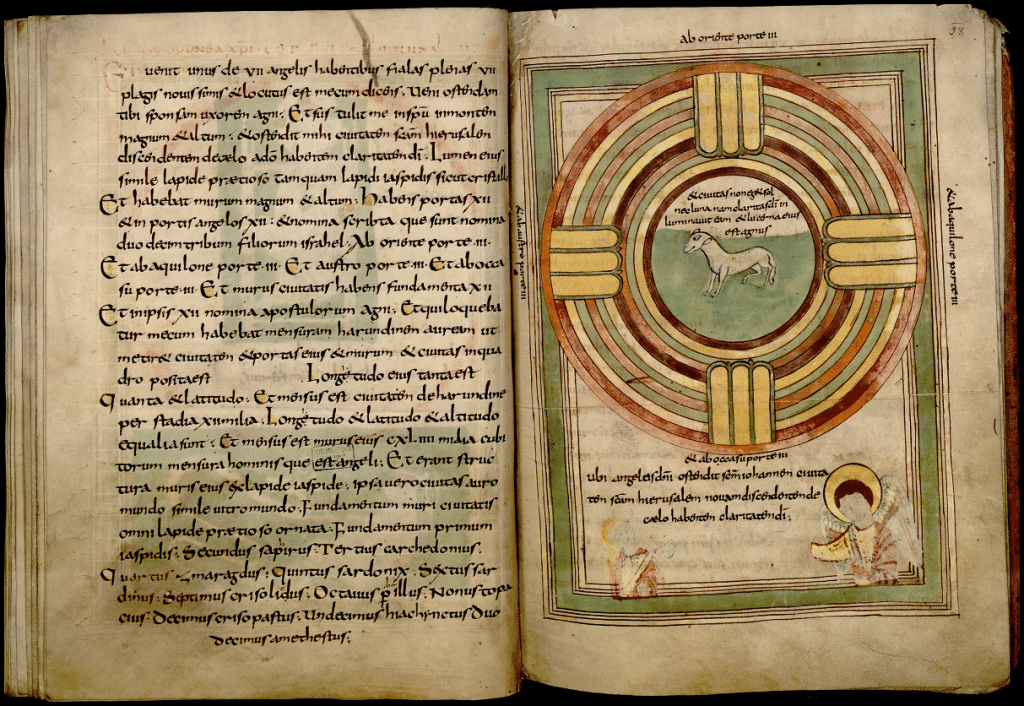 Et venit unus de vii angelis habentibus fialas plenas vii
plagis novissimis & locutus est mecum dicens. Veni ostendam
tibi sponsam uxorem agni. Et sustulit me in spū in montem
magnum & altum. & ostendit mihi civitatem scām hierusalem
discendentem de cælo a dō habentem claritatem dī. Lumen eius
simile lapide prætioso tamquam lapidi iaspidis sicut cristall
Et habebat murum magnum & altum. Habens portas xii
& in portis angelos xii. & nomina scribta que sunt nomina
duodecim tribum filiorum israhel. Ab oriente porte iii.
Et ab aquilone porte iii. Et austro porte iii. Et ab occa
su porte iii. Et murus civitatis habens fundamenta xii
Et in ipsis xii nomina apostulorum agni. Et qui loqueba
tur mecum habebat mensuram harundinem auream ut
metir& civitatem & portas eius & murum & civitas in qua
dro posita est Longetudo eius tanta est
Quanta & latitudo. Et mensus est civitatem de harundine
per stadia xii milia. Longetudo & latitudo & altitudo
equalia sunt. Et mensus est murus eius cxliiii milia cubi
torum mensura hominis que est angeli. Et erant struc
tura muris eius ex lapide iaspide. ipsa vero civitas auro
mundo simile vitro mundo. Fundamentum muri civitatis
omni lapide prætioso ornata. Fundamentum primum
iaspidis. Secundus sapirus. Tertius carchedonius.
Quartus zmaragdus. Quintus sardonix. Sextus sar
dinus. Septimus crisolidus. Octavus p illus. Nonus topa
cius. Decimus crisopastus. Undecimus hiachynctus Duo
decimus amethestus.
38
Ab oriente porte iii
& civitas non eg& sol
neq luna nam claritas dī in
luminavit eam & lucerna eius
est agnus
& ab austro porte iii
& ab aquilone porte iii
& ab occasu porte iii
Ubi angelus dnī ostendit scm iohannem civita
tem scām hierusalem novam discendentem de
cælo habentem claritatem dī.